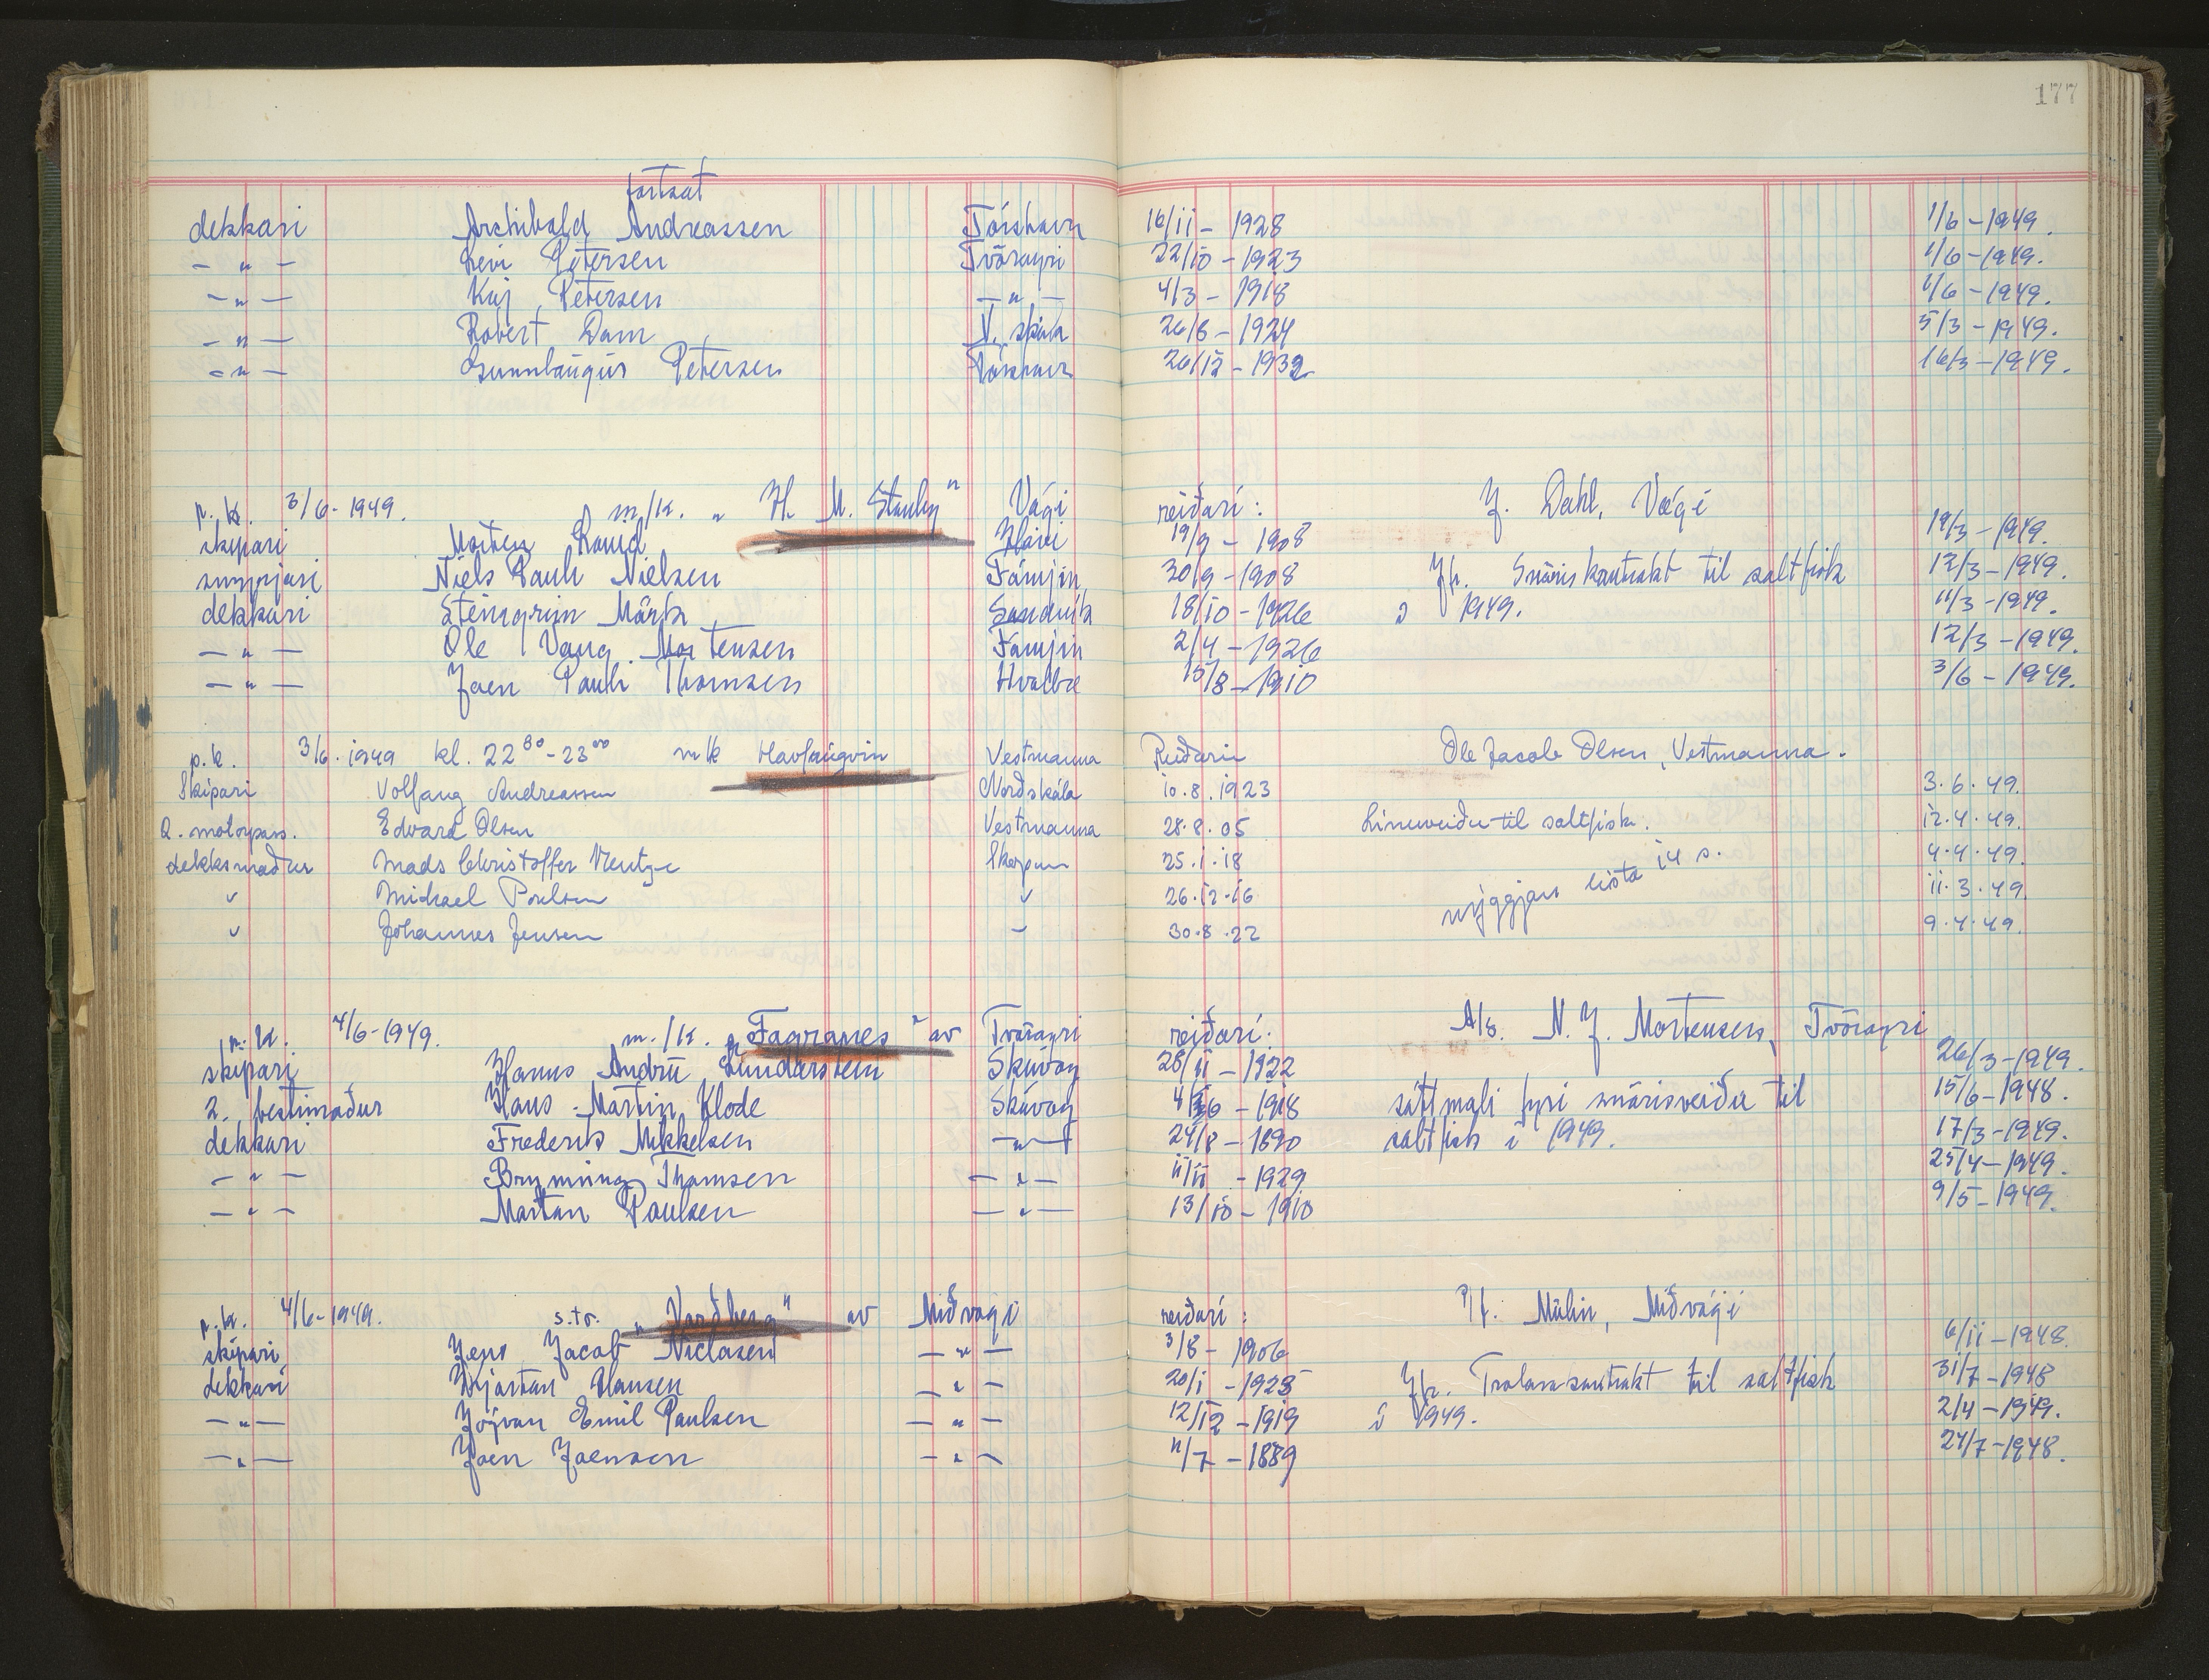 177
fortsat
dekkari Archibald Andreassen Tórshavn 16/11 - 1928 1/6-1949.
- " - Levi Petersen Tvöroyri 22/10 - 1923 1/6-1949.
- " - Kaj Petersen - " - 4/3 - 1918 1/6-1949.
- " - Robert Dam 26/8 - 1924 5/3-1949.
- " - Gunnleygur Petersen Tórshavn 26/12 - 1932 16/3-1949.
p. k. 3/6-1949. m/k. „ H. M. Stanley" Vági reiðarí: J. Dahl, Vági
skipari Morten 19/9 - 1908 19/3-1949.
Niels Pauli Nielsen Fámjin 30/9 - 1908 Jfr. Snøriskontrakt til saltfisk 12/3-1949.
dekkari Steingrim Mörk Sandvik 18/10 - 1926 í 1949. 11/3-1949.
- " - Ole Vang Mortensen Fámjin 2/4 - 1926 12/3-1949.
- " - Joen Pauli Thomsen Hvalbø 15/8 - 1910 3/6-1949.
p.k. 3/6.1949 kl. 22 30 - 23 00 m/k Havfrúgvin Vestmanna Reiðarin Ole Jacob Olsen, Vestmanna.
Skipari Volfang Andreassen Norðskála 10.8.1923 3.6.49.
2. motorpass. Edvard Olsen Vestmanna 28.8.05 Lineveiðu til saltfisk. 12.4.49.
dekksmaður Mads Christoffer Wentze Skopun 25.1.18 4.4.49.
" Michael Poulsen " 26.12.16 nýggjan lista 14 s. 11.3.49.
" Johannes Jensen " 30.8.22 9.4.49.
p. k. 4/6-1949. m./k. „Fagranes" av Tvöroyri reiðarí: A/s. N. J. Mortensen, Tvöroyri
skipari Hanus Andrii Lundarstein Skúvoy 28/11 - 1922 26/3-1949.
2. bestimaður Hans Martin Klode Skúvoy 4/6 - 1918 sáttmáli fyri snørisveiðu til 15/6-1948.
dekkari Frederik Mikkelsen - " - 24/8 - 1890 saltfisk í 1949. 17/3-1949.
- " - Brynning Thomsen - " - 11/11 - 1929 25/4-1949.
- " - Martan Poulsen - " - 13/10 - 1910 9/5-1949.
p.k. 4/6-1949. s.tr. „Varðberg" av Miðvági reiðarí: P/f. Mylin, Miðvági
skipari Jens Jacob Niclasen - " - 3/8 - 1906 6/11-1948.
dekkari Kjartan Hansen - " - 20/1 - 1925 Jfr. Tralarakontrakt til saltfisk 31/7-1948
- " - Jógvan Emil Poulsen - " - 12/12 - 1919 í 1949. 2/4-1949.
- " - Joen Joensen - " - 11/7 - 1889 24/7-1948.